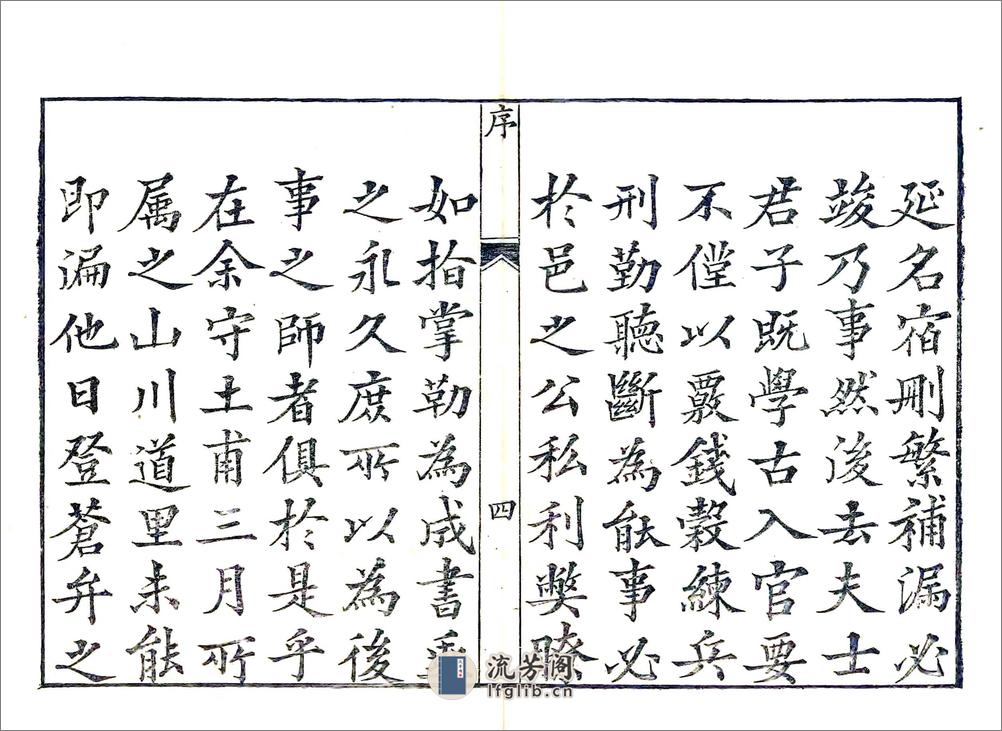 延名宿刪繁補漏必
竣乃事然後去夫士
君子既學古入官要
不儻以覈錢穀練兵
刑勤聽斷為能事必
於邑之公私利獘瞭
序
四
如指掌勒為成書垂
之永久庶所以為後
事之師者俱於是乎
在余守土甫三月所
属之山川道里未能
即漏他日登蒼弁之
流芳阁
lfglib.cn